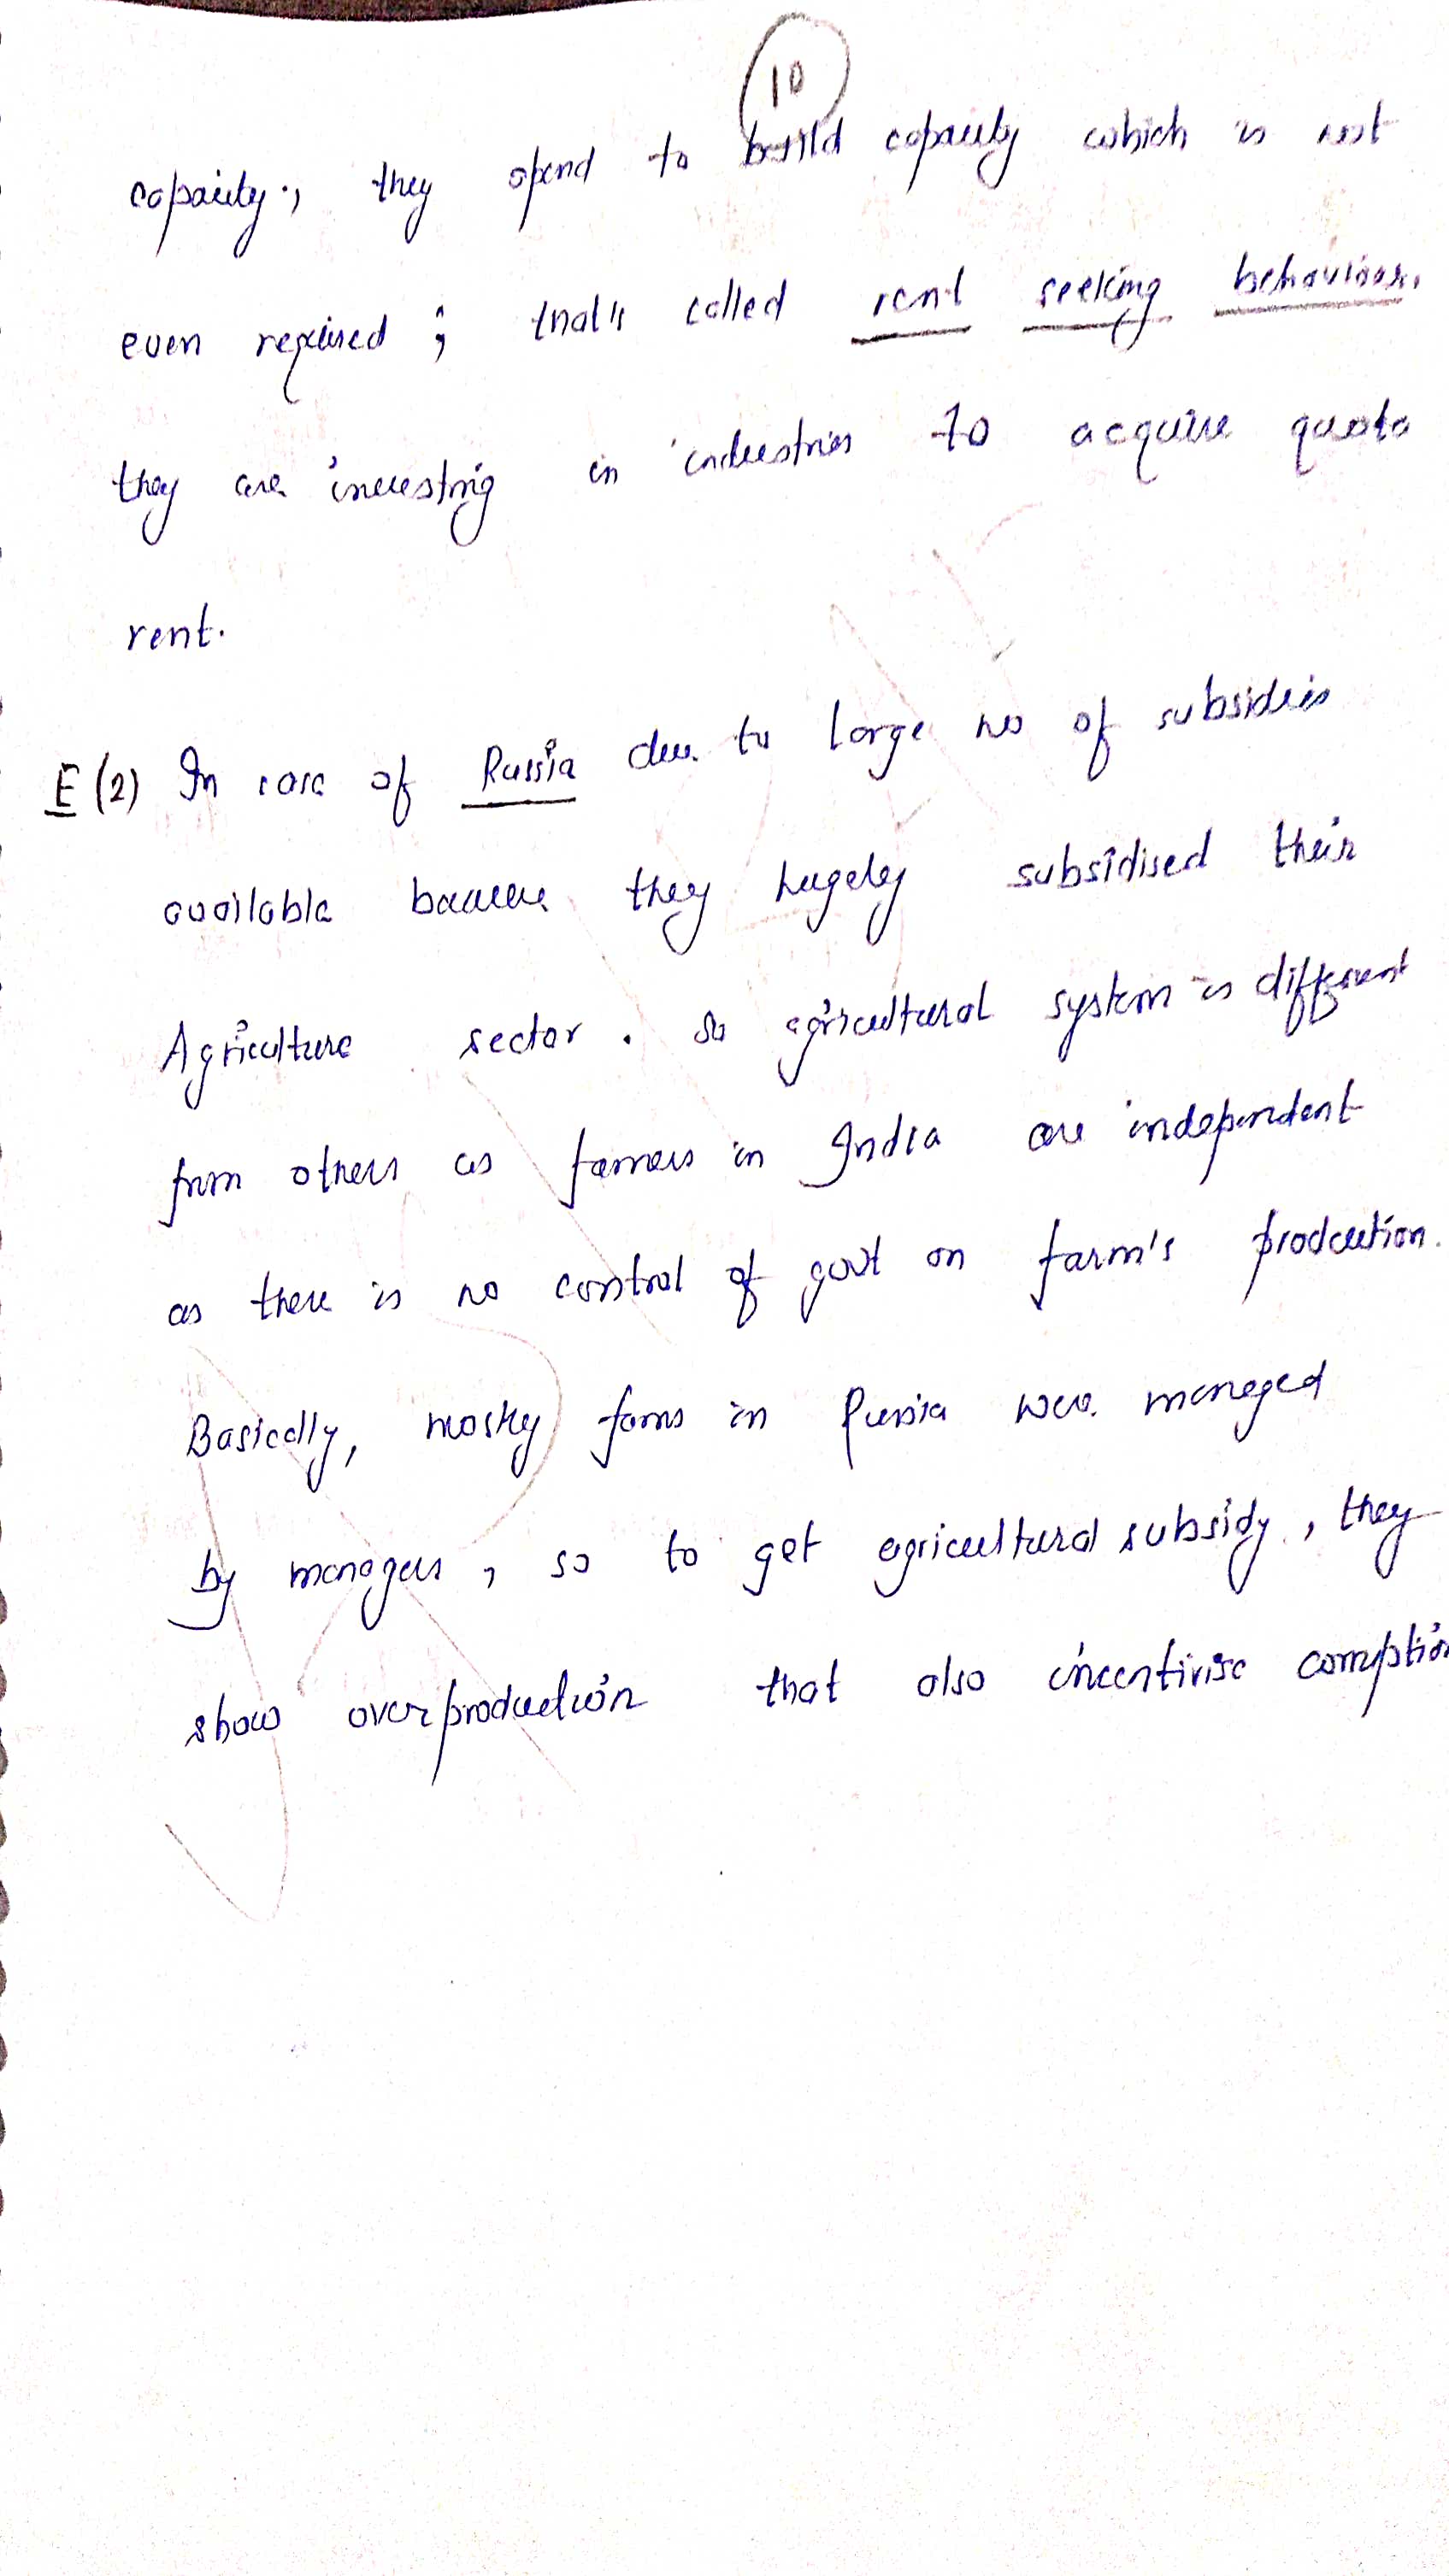 10
capacity, they spend to build capacity which is not
even required ; that's called rent seeking behaviour.
they are investing in industries to acquire quota
rent.
E (2) In case of Russia due to large no of subsidies
available because they hugely subsidised their
Agriculture sector. So agricultural system is different
from others as farmers in India are independent
as there is no control of govt on farm's production.
Basically, mostly farms in Russia were managed
by managers, so to get agricultural subsidy, they
show overproduction that also incentivise corruption